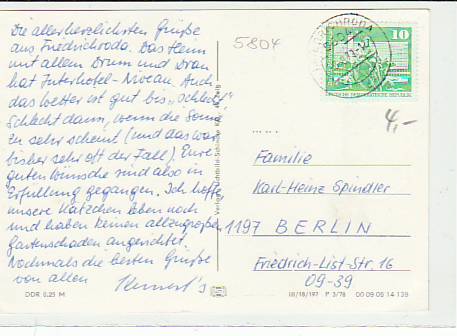 Die allerherzlichsten Grüße
aus Friedrichroda. Das Heim
mit allem Drum und Dran
hat Interhotel-Niveau. Auch
das Wetter ist gut bis "schlecht".
Schlecht dann, wenn die Sonne
zu sehr scheint (und das war
bisher sehr oft der Fall). Eure
guten Wünsche sind also in
Erfüllung gegangen. Ich hoffe,
unsere Kätzchen leben noch
und haben keinen allzugroßen
Gartenschaden angerichtet.
Nochmals die besten Grüße
von allen
DDR 0,25 M
5804
10
DEUTSCHE DEMOKRATISCHE REPUBLIK
4,-
Familie
Karl-Heinz Spindler
1197 BERLIN
Friedrich-List-Str. 16
09-39
III/18/197 P 3/78 00 09 05 14 139